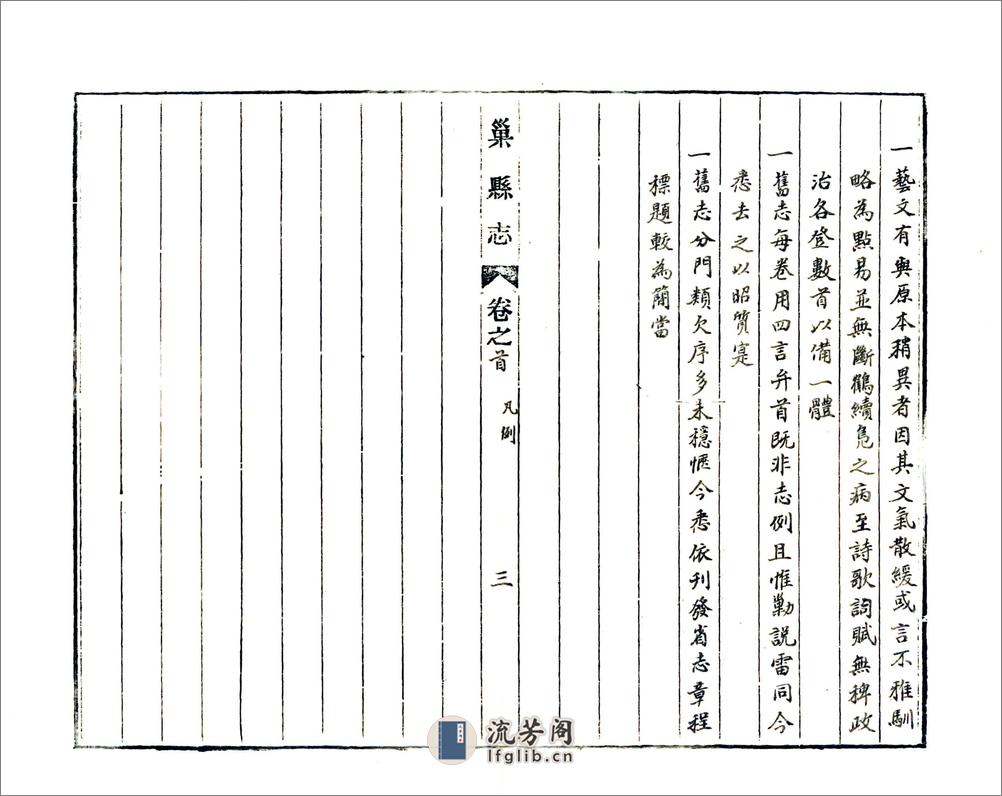 一藝文有與原本稍異者因其文氣散緩或言不雅馴
略為點易並無斷鶴續鳧之病至詩歌詞賦無稗政
治各登數首以備一體
一舊志每卷用四言弁首既非志例且惟勦説雷同今
悉去之以昭質寔
一舊志分門類欠序多未穩愜今悉依刊發省志章程
標題較為簡當
巢縣志 卷之首 凡例 三
流芳阁
lfglib.cn